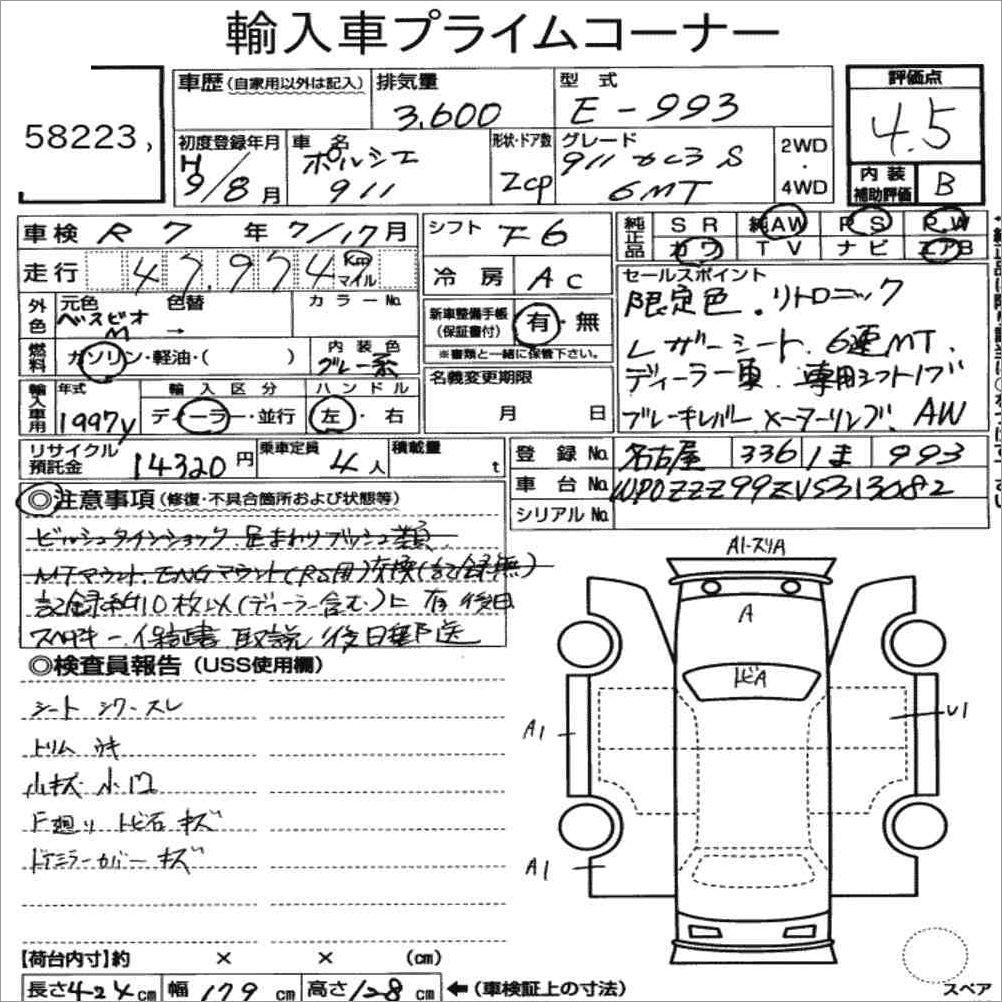 輸入車プライムコーナー
58223,
車歴(自家用以外は記入) 排気量 3,600 型式 E-993
評価点 4.5
初度登録年月 H9/8月 車名 ポルシェ 911 形状・ドア数 2cp グレード 911 カレラS 6MT 2WD・4WD
内装補助評価 B
車検 R7年7/17月 シフト F6
純正品 SR 純AW PS P.W
カワ TV ナビ エアB
走行 47,974 km マイル 冷房 AC
セールスポイント
限定色.リトロニック
レザーシート.6速MT.
ディーラー車.専用シフトノブ
ブレーキレバー メーターリング.AW
外色 元色 ベスピオM 色替 → カラーNo.
新車整備手帳(保証書付) 有・無
※書類と一緒に保管下さい。
燃料 ガソリン・軽油・( ) 内装色 グレー系
名義変更期限 月 日
輸入車用 年式 1997y 輸入区分 ディーラー・並行 ハンドル 左・右
リサイクル預託金 14320円 乗車定員 4人 積載量 t
登録No. 名古屋 336 ま 993
車台No. WP0ZZZ99ZVS313082
シリアルNo.
◎注意事項(修復・不具合箇所および状態等)
ビルシュタインショック.足まわりブッシュ類.
MTマウント.ENGマウント(RS用)交換(記録無)
記録簿10枚以(ディーラー含む)に有 後日
スペアキー 保証書 取説 後日郵送
◎検査員報告(USS使用欄)
シート シワ・スレ
トリム ウキ
小キズ 小凹
F廻り トビ石 キズ
ドアミラーカバー キズ
A1-スリA
A
トビA
A1
U1
A1
【荷台内寸】約 × × (cm)
長さ424cm 幅179cm 高さ128cm ←(車検証上の寸法)
スペア